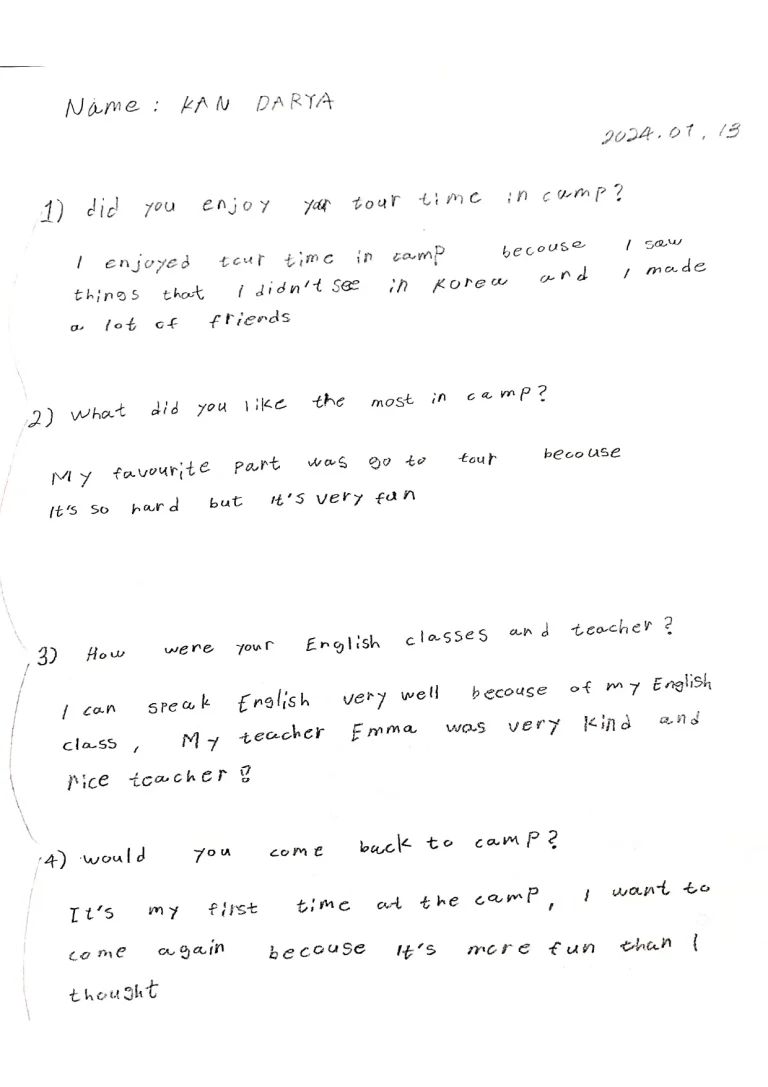 Name: KAN DARYA
2024.01.13
1) did you enjoy your tour time in camp?
I enjoyed tour time in camp becouse I saw
things that I didn't see in Korea and I made
a lot of friends
2) What did you like the most in camp?
My favourite part was go to tour becouse
It's so hard but it's very fun
3) How were your English classes and teacher?
I can speak English very well becouse of my English
class, My teacher Emma was very kind and
nice teacher!?
4) would you come back to camp?
It's my first time at the camp, I want to
come again becouse It's more fun than I
thought